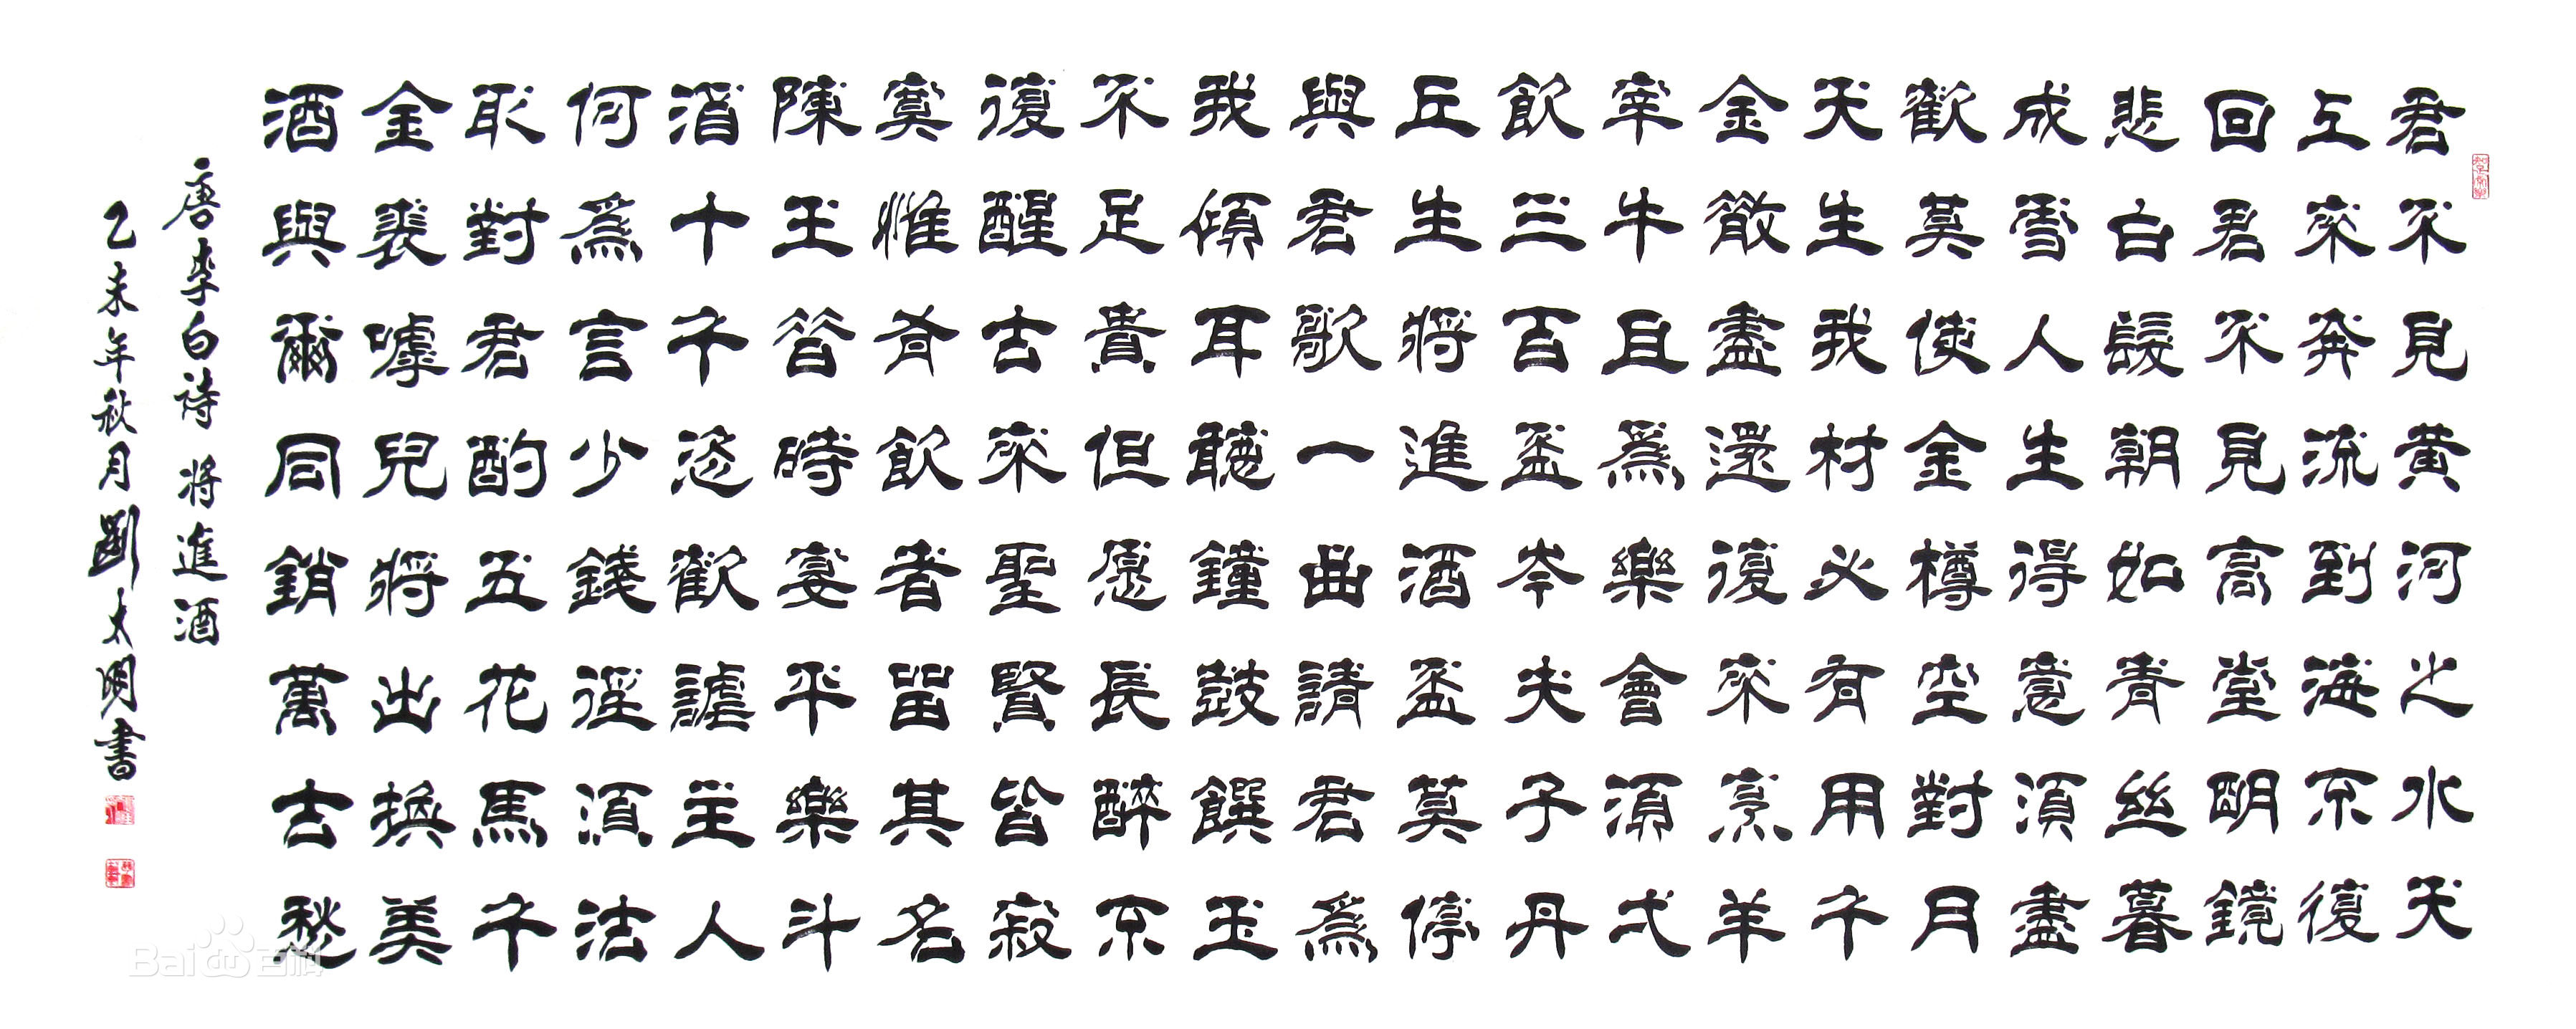 君不見黃河之水天
上來奔流到海不復
回君不見高堂明鏡
悲白髮朝如青絲暮
成雪人生得意須盡
歡莫使金樽空對月
天生我材必有用千
金散盡還復來烹羊
宰牛且爲樂會須弌
飲三百盃岑夫子丹
丘生將進酒盃莫停
與君歌一曲請君爲
我傾耳聽鐘鼓饌玉
不足貴但愿長醉不
復醒古來聖賢皆寂
寞惟有飲者留其名
陳王昔時宴平樂斗
酒十千恣歡謔主人
何爲言少錢徑須沽
取對君酌五花馬千
金裘嘑兒將出換美
酒與爾同銷萬古愁
唐李白詩 將進酒
乙未年秋月劉太明書
Bai百科